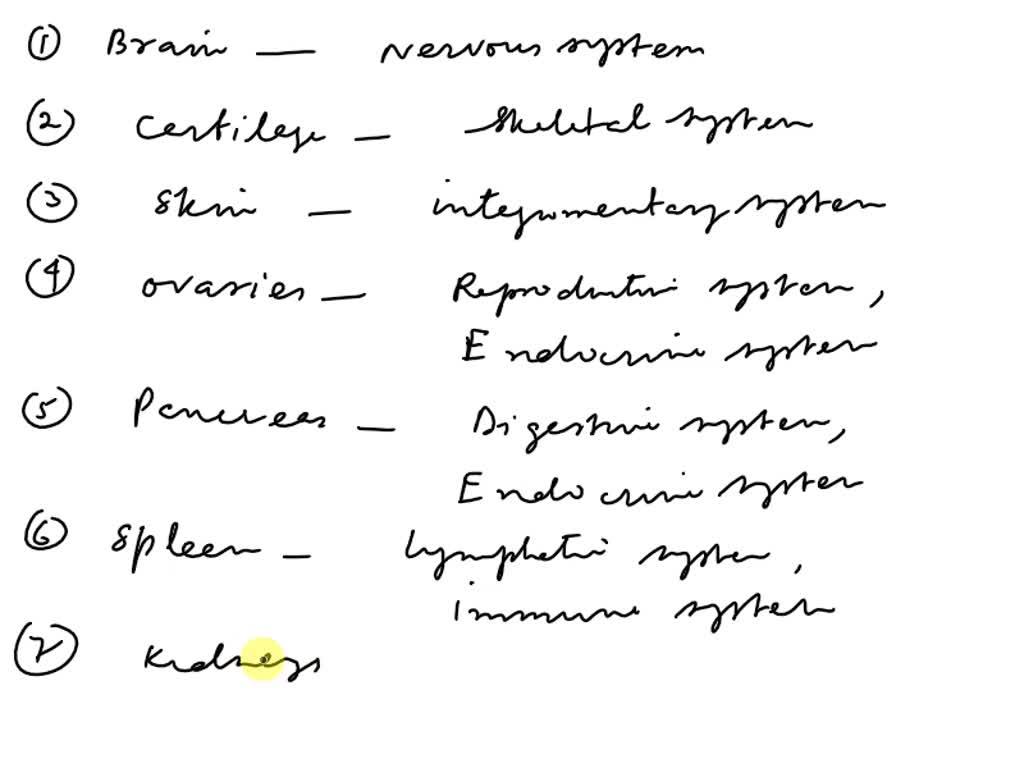 ① Brain — Nervous system
② Cartilage — Skeletal system
③ Skin — integumentary system
④ ovaries — Reproductive system,
Endocrine system
⑤ Pancreas — Digestive system,
Endocrine system
⑥ Spleen — lymphatic system,
immune system
⑦ Kidneys